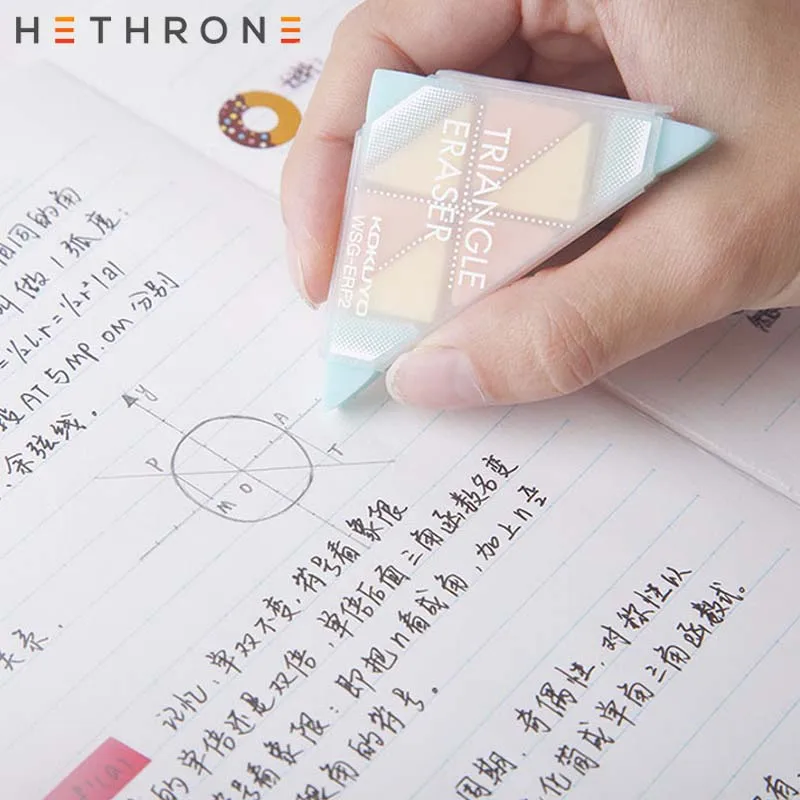 HETHRONE
TRIANGLE
ERASER
KOKUYO
WSG-ERP2
相同的角
叫做1弧度:
=½l.r=½r²|α|
段AT与MP.OM分别
余弦线.
y
A
P
T
M O
关系.
记忆:单双不变.符号看象限
的单倍还是双倍,单倍后面三角函数名变
号看象限:即把n看成角,加上n
角的符号.
周期,奇偶性,对称性以
化简成单角三角函数式.